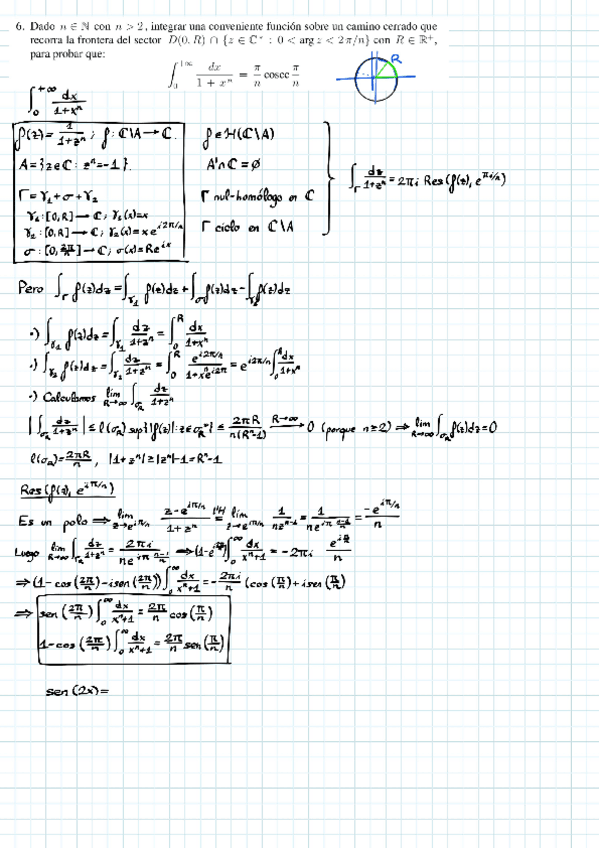 6. Dado n ∈ ℕ con n > 2, integrar una conveniente función sobre un camino cerrado que
recorra la frontera del sector D(0, R) ∩ {z ∈ ℂ* : 0 < arg z < 2π/n} con R ∈ ℝ⁺,
para probar que:
∫₀^{+∞} dx/(1 + xⁿ) = π/n cosec π/n
R
∫₀^{+∞} dx/(1+xⁿ)
f(z) = 1/(1+zⁿ) ; f: ℂ\A → ℂ. f ∈ H(ℂ\A)
A = {z ∈ ℂ : zⁿ = -1}. A' ∩ ℂ = ∅
∫_Γ dz/(1+zⁿ) = 2πi Res(f(z), e^{πi/n})
Γ = γ₁ + σ + γ₂ Γ nul-homólogo en ℂ
γ₁ : [0,R] → ℂ ; γ₁(x) = x
γ₂ : [0,R] → ℂ ; γ₂(x) = x e^{i2π/n} Γ ciclo en ℂ\A
σ : [0, 2π/n] → ℂ ; σ(x) = Re^{ix}
Pero ∫_Γ f(z)dz = ∫_{γ₁} f(z)dz + ∫_σ f(z)dz - ∫_{γ₂} f(z)dz
·) ∫_{γ₁} f(z)dz = ∫_{γ₁} dz/(1+zⁿ) = ∫₀^R dx/(1+xⁿ)
·) ∫_{γ₂} f(z)dz = ∫_{γ₂} dz/(1+zⁿ) = ∫₀^R e^{i2π/n}/(1+xⁿe^{i2π}) = e^{i2π/n} ∫₀^R dx/(1+xⁿ)
·) Calculamos lim_{R→∞} ∫_{σ_R} dz/(1+zⁿ)
|∫_{σ_R} dz/(1+zⁿ)| ≤ l(σ_R) sup{|f(z)| : z ∈ σ_R*} ≤ 2πR/(n(Rⁿ-1)) →^{R→∞} 0 (porque n≥2) ⇒ lim_{R→∞} ∫_{σ_R} f(z)dz = 0
l(σ_R) = 2πR/n , |1+zⁿ| ≥ |zⁿ|-1 = Rⁿ-1
Res(f(z), e^{iπ/n})
Es un polo ⇒ lim_{z→e^{iπ/n}} (z-e^{iπ/n})/(1+zⁿ) =^{L'H} lim_{z→e^{iπ/n}} 1/(nz^{n-1}) = 1/(ne^{iπ (n-1)/n}) = -e^{iπ/n}/n
Luego lim_{R→∞} ∫_Γ dz/(1+zⁿ) = 2πi/(ne^{iπ (n-1)/n}) ⇒ (1-e^{i2π/n}) ∫₀^∞ dx/(xⁿ+1) = -2πi e^{iπ/n}/n
⇒ (1 - cos(2π/n) - isen(2π/n)) ∫₀^∞ dx/(xⁿ+1) = -2πi/n (cos(π/n) + isen(π/n))
⇒ sen(2π/n) ∫₀^∞ dx/(xⁿ+1) = 2π/n cos(π/n)
1-cos(2π/n) ∫₀^∞ dx/(xⁿ+1) = 2π/n sen(π/n)
sen(2x) =